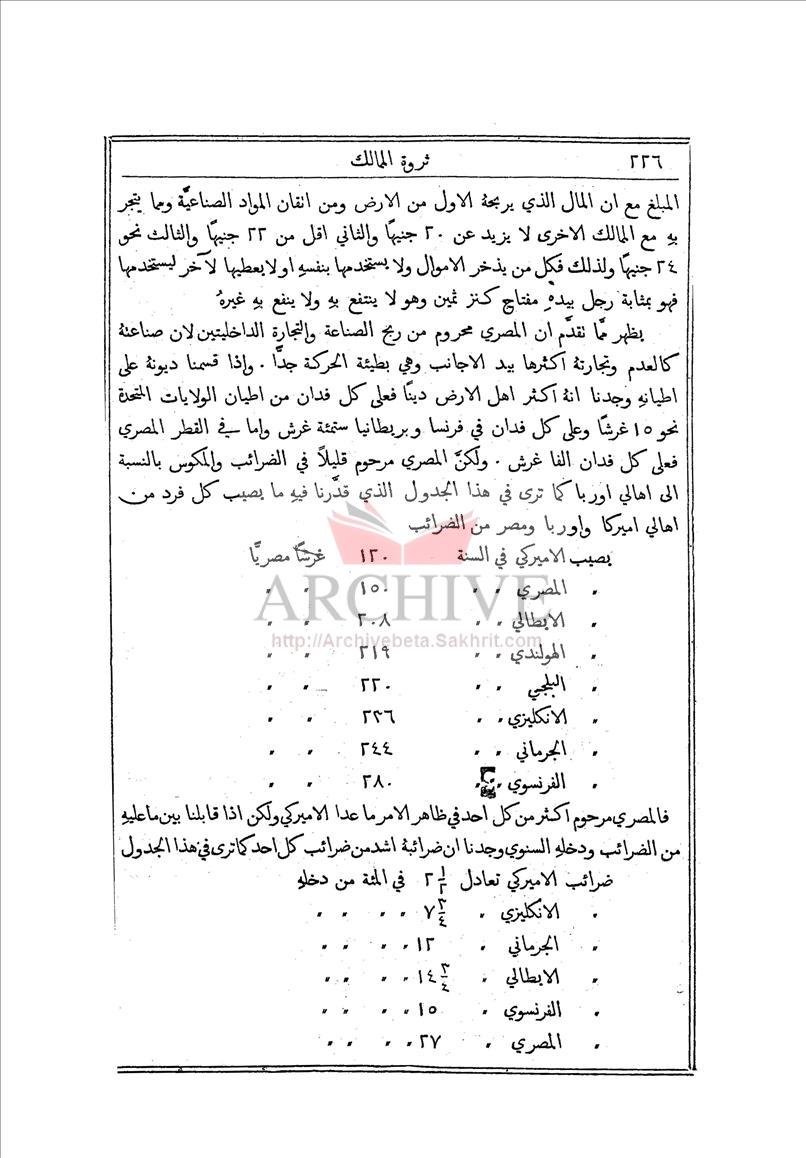 ٢٢٦ ثروة الممالك
المبلغ مع ان المال الذي يربحهُ الاول من الارض ومن اتقان المواد الصناعيَّة ومما يتجر
بهِ مع الممالك الاخرى لا يزيد عن ٢٠ جنيهًا والثاني اقل من ٢٢ جنيهًا والثالث نحو
٢٤ جنيهًا ولذلك فكل من يذخر الاموال ولا يستخدمها بنفسهِ او لا يعطيها لآخر ليستخدمها
فهو بمثابة رجل بيدهِ مفتاح كنز ثمين وهو لا ينتفع بهِ ولا ينفع بهِ غيرهُ
يظهر ممَّا نقدَّم ان المصري محروم من ربح الصناعة والتجارة الداخليتين لان صناعتهُ
كالعدم وتجارتهُ اكثرها بيد الاجانب وهي بطيئة الحركة جدًّا . وإذا قسمنا ديونهُ على
اطيانهِ وجدنا انهُ اكثر اهل الارض دينًا فعلى كل فدان من اطيان الولايات المتحدة
نحو ١٥ غرشًا وعلى كل فدان في فرنسا وبريطانيا ستمئة غرش وإما في القطر المصري
فعلى كل فدان الفا غرش . ولكنَّ المصري مرحوم قليلاً في الضرائب والمكوس بالنسبة
الى اهالي اوربا كما ترى في هذا الجدول الذي قدَّرنا فيهِ ما يصيب كل فرد من
اهالي اميركا واوربا ومصر من الضرائب
يصيب الاميركي في السنة ١٢٠ غرشًا مصريًّا
" المصري " " ١٥٠ " "
ARCHIVE
" الايطالي " " ٢٠٨ " "
http://Archivebeta.Sakhrit.com
" الهولندي " " ٢١٩ " "
" البلجي " " ٢٢٠ " "
" الانكليزي " " ٢٣٦ " "
" الجرماني " " ٢٤٤ " "
" الفرنسوي " " ٢٨٠ " "
فالمصري مرحوم اكثر من كل احد في ظاهر الامر ما عدا الاميركي ولكن اذا قابلنا بين ما عليهِ
من الضرائب ودخلهِ السنوي وجدنا ان ضرائبهُ اشد من ضرائب كل احد كما ترى في هذا الجدول
ضرائب الاميركي تعادل ٢ ١/٢ في المئة من دخلهِ
" الانكليزي " ٧ ٣/٤ " " " "
" الجرماني " ١٢ " " " "
" الايطالي " ١٤ ٣/٤ " " " "
" الفرنسوي " ١٥ " " " "
" المصري " ٢٧ " " " "